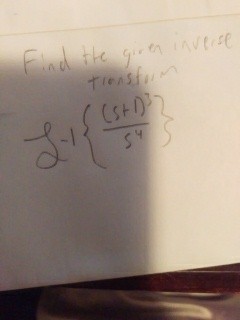 Find the given inverse
transform
ℒ-1{(s+1)³/s⁴}